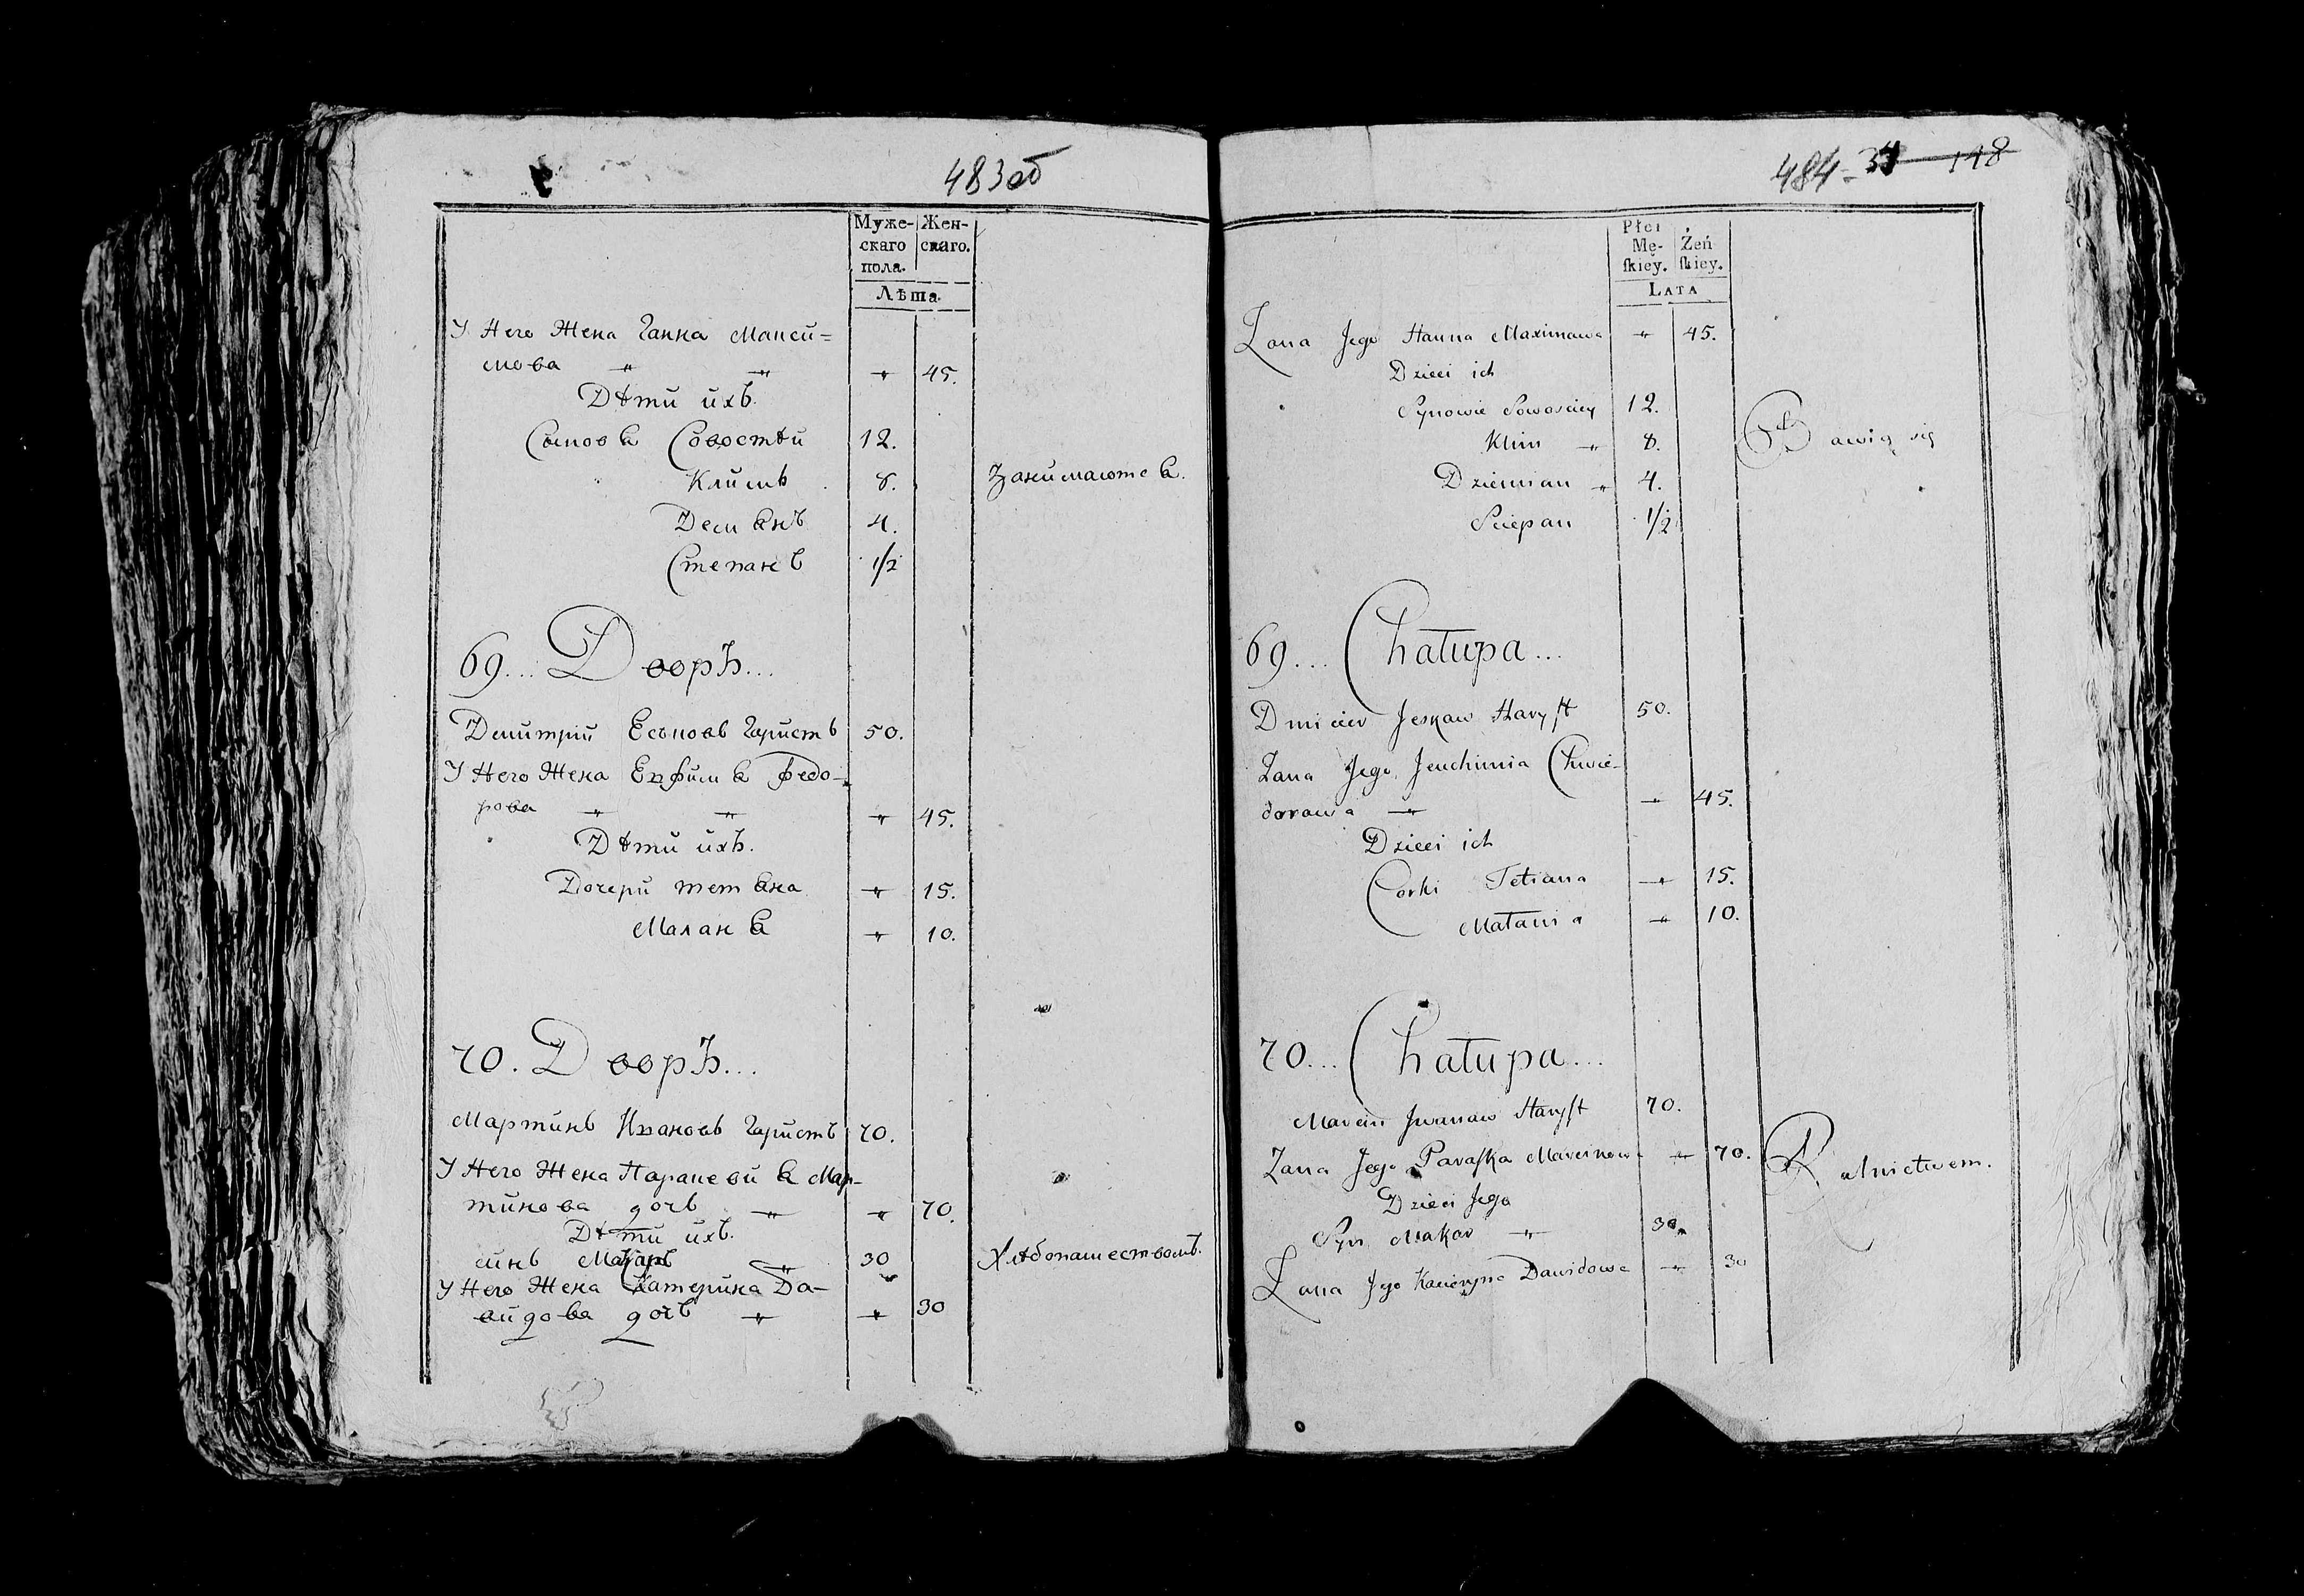 483об
Муже- Жен-
скаго скаго.
пола.
Лѣта.
У Него Жена Ганна Макси=
мова „ „ „ 45.
Дѣти ихъ.
Сыновя Совостѣй 12.
Климъ 8. Занимаются.
Демянъ 4.
Степанъ 1/2
69... Дворъ...
Демитрій Есьповъ Гаристъ 50.
У Него Жена Евфимя Федо-
рова „ „ „ 45.
Дѣти ихъ.
Дочери тетяна „ 15.
Маланя „ 10.
70. Дворъ...
Мартинъ Ивановъ Гаристъ 70.
У Него Жена Параскевия Мар-
тинова дочь „ „ 70.
Дѣти ихъ.
синъ Макаръ „ 30 Хлѣбопашествомъ.
У Него Жена Катерина Да-
видова дочь „ „ 30
484 - 148
Płci
Mę- Żeń
ſkiey. ſkiey.
LATA
Żona Jego Hanna Maximowa „ 45.
Dzieci ich
Synowie Sowosciey 12.
Klim „ 8. Bawią się
Dziemian „ 4.
Sciepan 1/2
69... Chałupa...
Dmicier Jeskaw Haryſt 50.
Żona Jego Jeuchimia Chwie-
dorowa „ „ 45.
Dzieci ich
Corki Tetiana „ 15.
Małania „ 10.
70... Chałupa...
Marcin Jwanaw Haryſt 70.
Żona Jego Paraſka Marcinowa „ 70. Rolnictwem.
Dzieci Jego
Syn Makar „ 30
Żona Jego Kacieryna Dawidowa „ 30